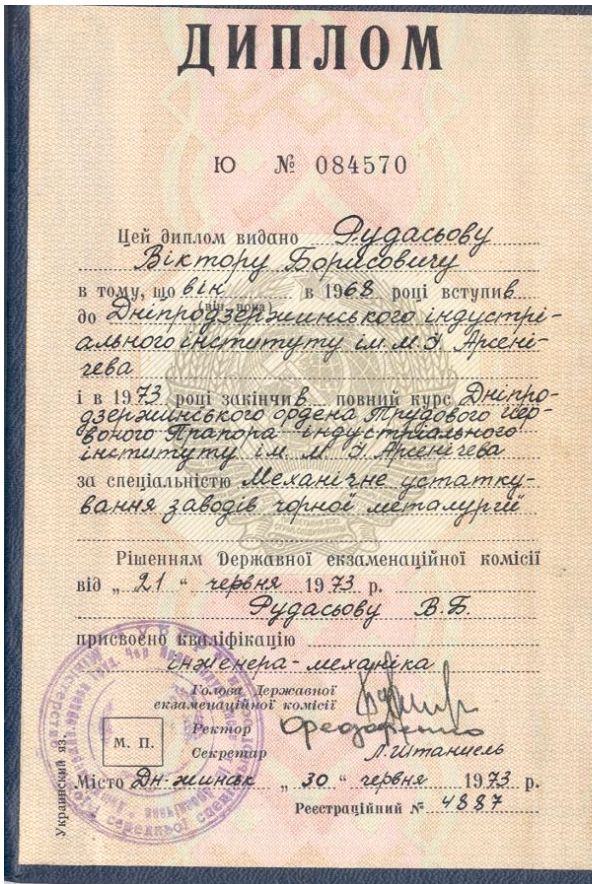 ДИПЛОМ
Ю № 084570
Цей диплом видано Рудасьову
Віктору Борисовичу
в тому, що він в 1968 році вступив
(він, вона)
до Дніпродзержинського індустрі-
ального інституту ім. М. І. Арсені-
чева
і в 1973 році закінчив повний курс Дніпро-
дзержинського ордена Трудового Чер-
воного Прапора індустріального
інституту ім. М І Арсенічева
за спеціальністю Механічне устатку-
вання заводів чорної металургії
Рішенням Державної екзаменаційної комісії
від „ 21 “ червня 1973 р.
Рудасьову В.Б.
присвоєно кваліфікацію
інженера-механіка
Голова Державної
екзаменаційної комісії
Ректор
М. П.
Секретар
Місто Дн-жинськ „ 30 “ червня 1973 р.
Реєстраційний № 4887
Украинский яз.